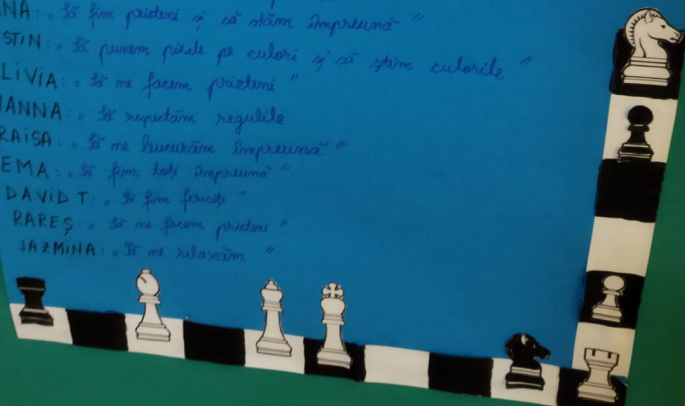 NA: „Să fim prieteni și să stăm împreună”
STIN: „Să punem piesele pe culori și să știm culorile”
LIVIA: „Să ne facem prieteni”
IANNA: „Să respectăm regulile
RAISA: „Să ne bucurăm împreună”
EMA: „Să fim toți împreună”
DAVID T: „Să fim fericiți”
RAREȘ: „Să ne facem prieteni”
JAZMINA: „Să ne relaxăm”